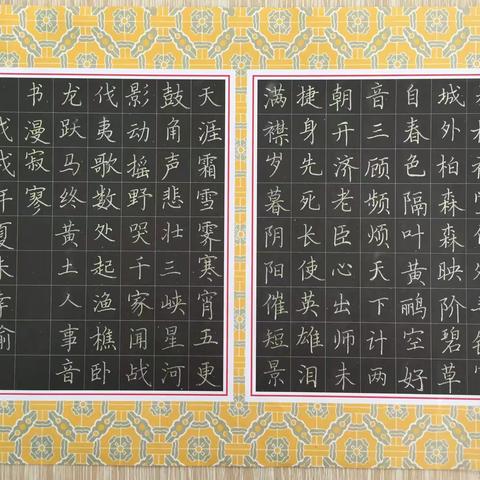 城外柏森森映阶碧草
自春色隔叶黄鹂空好
音三顾频烦天下计两
朝开济老臣心出师未
捷身先死长使英雄泪
满襟岁暮阴阳催短景
天涯霜雪霁寒宵五更
鼓角声悲壮三峡星河
影动摇野哭千家闻战
伐夷歌数处起渔樵卧
龙跃马终黄土人事音
书漫寂寥